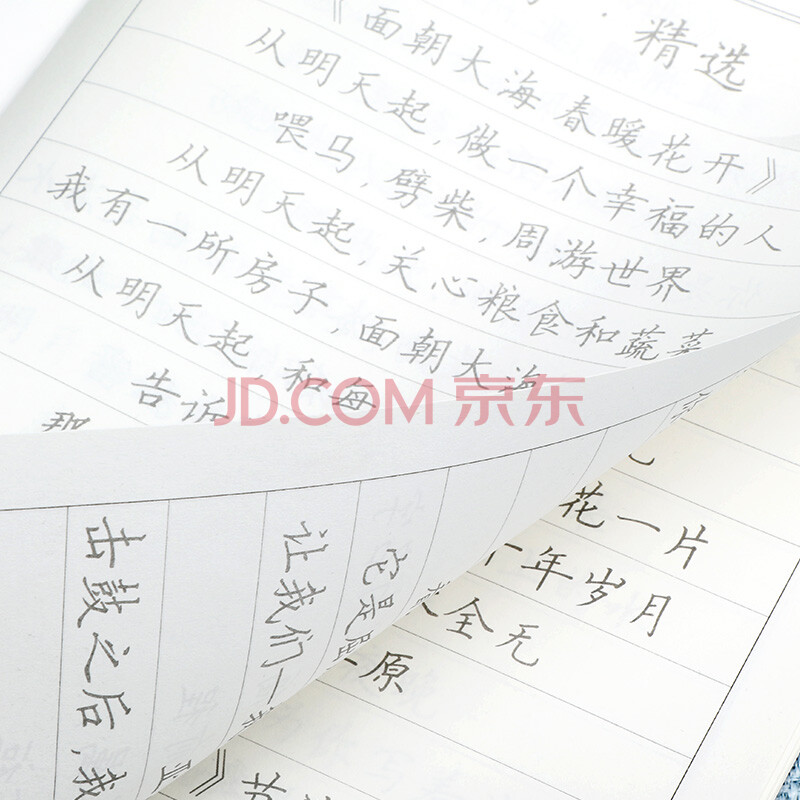 ·精选
《面朝大海 春暖花开》
从明天起,做一个幸福的人
喂马,劈柴,周游世界
从明天起,关心粮食和蔬菜
我有一所房子,面朝大海
从明天起,和每
告诉
那
JD.COM 京东
击鼓之后,我
让我们一
它是
花一片
年岁月
全无
原